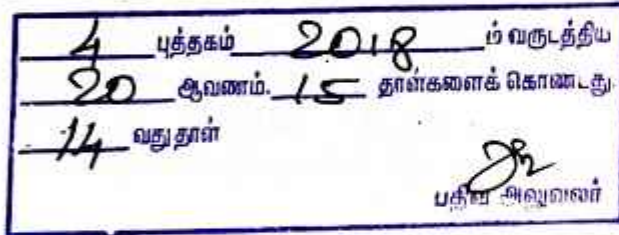 4 புத்தகம் 2018 ம் வருடத்திய
20 ஆவணம். 15 தாள்களைக் கொண்டது
14 வது தாள்
பதிவு அலுவலர்